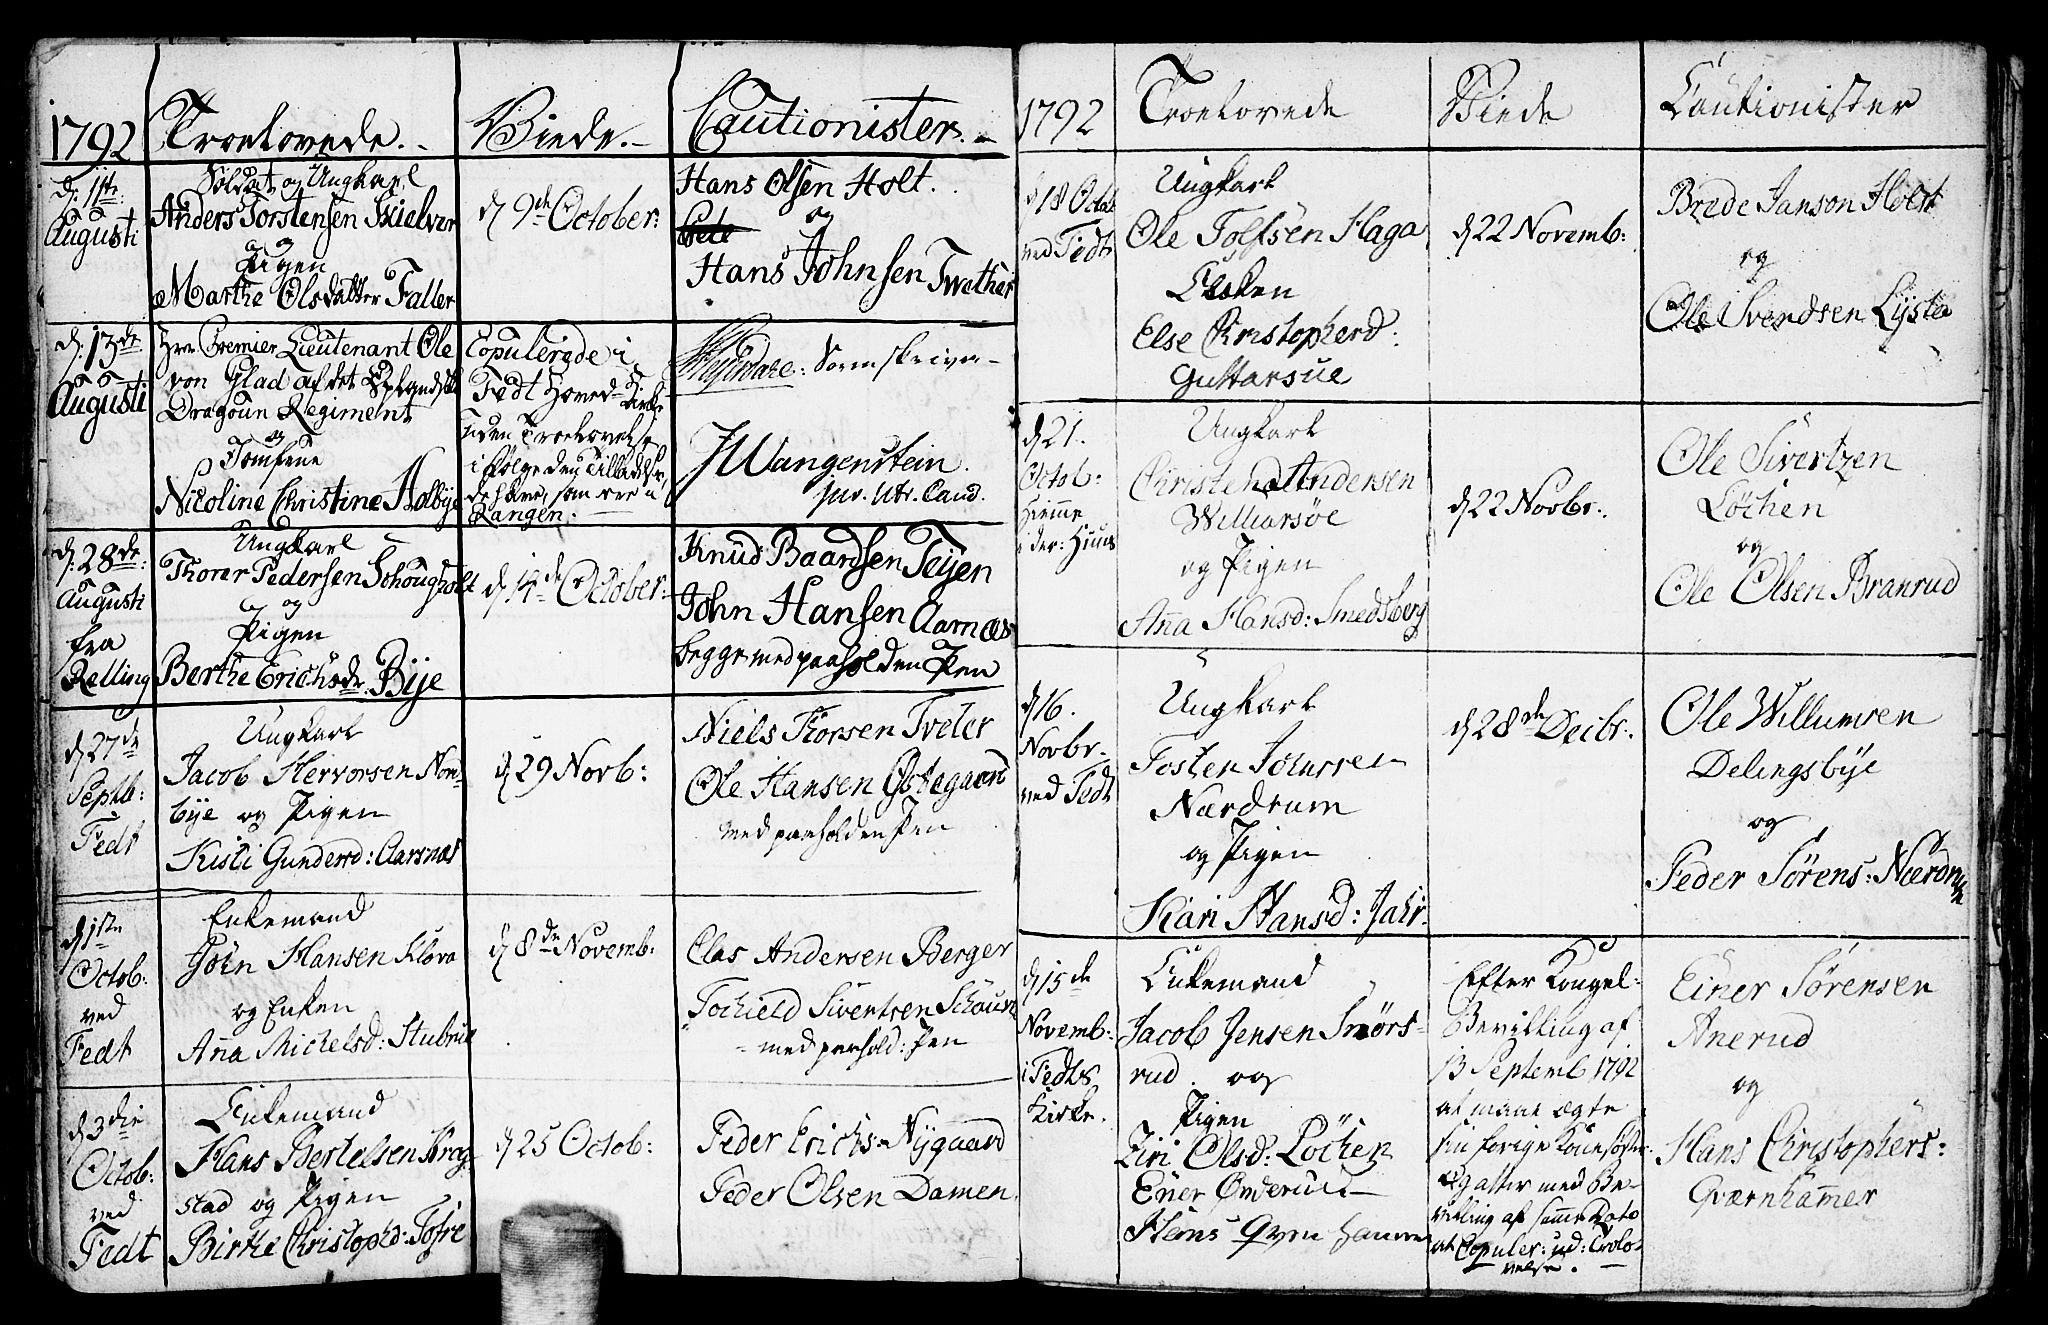 1792
Troelovede.
Viede.
Cautionister.
d: 11te:
Augusti
Soldat og Ungkarl
Anders Torstensen Skielver
og
Pigen
Marthe Olsdatter Faller
d 9de October:
Hans Olsen Holt.
og
Hans Johnsen Twether
d: 13de
Augusti
Hrr Premier Lieutenant Ole
von Glad af det Oplandske
Dragoun Regiment
og
Jomfrue
Nicoline Christine Holbye
Copulerede i
Fedt Hoved Kirke
uden Troelovelse
i følge den Tilladelse,
de have, som ere i
Rangen.
Sorenskriver
JWangenstein.
jur. utr. Cand.
d: 28de:
Augusti
fra
Relling
Ungkarl
Thorer Pedersen Schougholt
og
Pigen
Berthe Erichsdr Bije
d 12de October:
Knud Baardsen Teijen
John Hansen Aarnæs
begge med paaholden Pen
d 27de
Septb:
Fedt
Ungkarl
Jacob Hervorsen Nord-
bÿe og Pigen
Kisti Gundersd: Aarsnæs
d 29 Novb:
Niels Thorsen Tveter
Ole Hansen Østegaard
med paaholden Pen
d 1ste
Octob:
ved
Fedt
Enkemand
John Hansen Kløva
og Enken
Anna Michelsd: Stubrue
d 8de Novemb:
Clas Andersen Berger
Tochield Siversen
med paahold: Pen
d 3die
Octob:
ved
Fedt
Enkemand
Hans Bertelsen Krog-
stad og Pigen
Birthe Christophd: Tofre
d 25 Octob:
Peder Erichsn Nÿgaard
Peder Olsen Damen.
1792
Troelovede
Viede
Cautionister
d 18 Octob
ved Fedt
Ungkarl
Ole Tolfsen Haga
Enken
Else Christopherd:
Guttarsue
d 22 Novemb:
Brede Janson Holst
og
Ole Svendsen Lÿsto
d 21.
Octob:
hiemme
i der: Huus
Ungkarl
Christen Andersen
Williarsøe
og Pigen
Anna Hansd: Smedsberg
d 22 Novbr.
Ole Sivertzen
Løchen
og
Ole Olsen Branrud
d 16.
Novbr.
ved Fedt
Ungkarl
Tosten Johnssen
Nærdrum
og Pigen
Kari Hansd: Jahr.
d 28de Decbr.
Ole Willumsen
Delingsbÿe
og
Peder Sørens: Nærdrum
d 15de
Novemb:
i Fedts
Kirke.
Enkemand
Jacob Jensen Smørs-
rud. og
Pigen
Ziri Olsd: Løchen
Einer Ønderud
Hans Qvern hammer
Efter Kongel:
Bevilling af
13 Septemb 1792
at maae ægte
sin forige Kones søster
og atter med Be-
villing af samme Dato
at Copuler: ud: Trolo-
velse.
Einer Sørensen
Anerud
og
Hans Christophers:
Qværnhammer